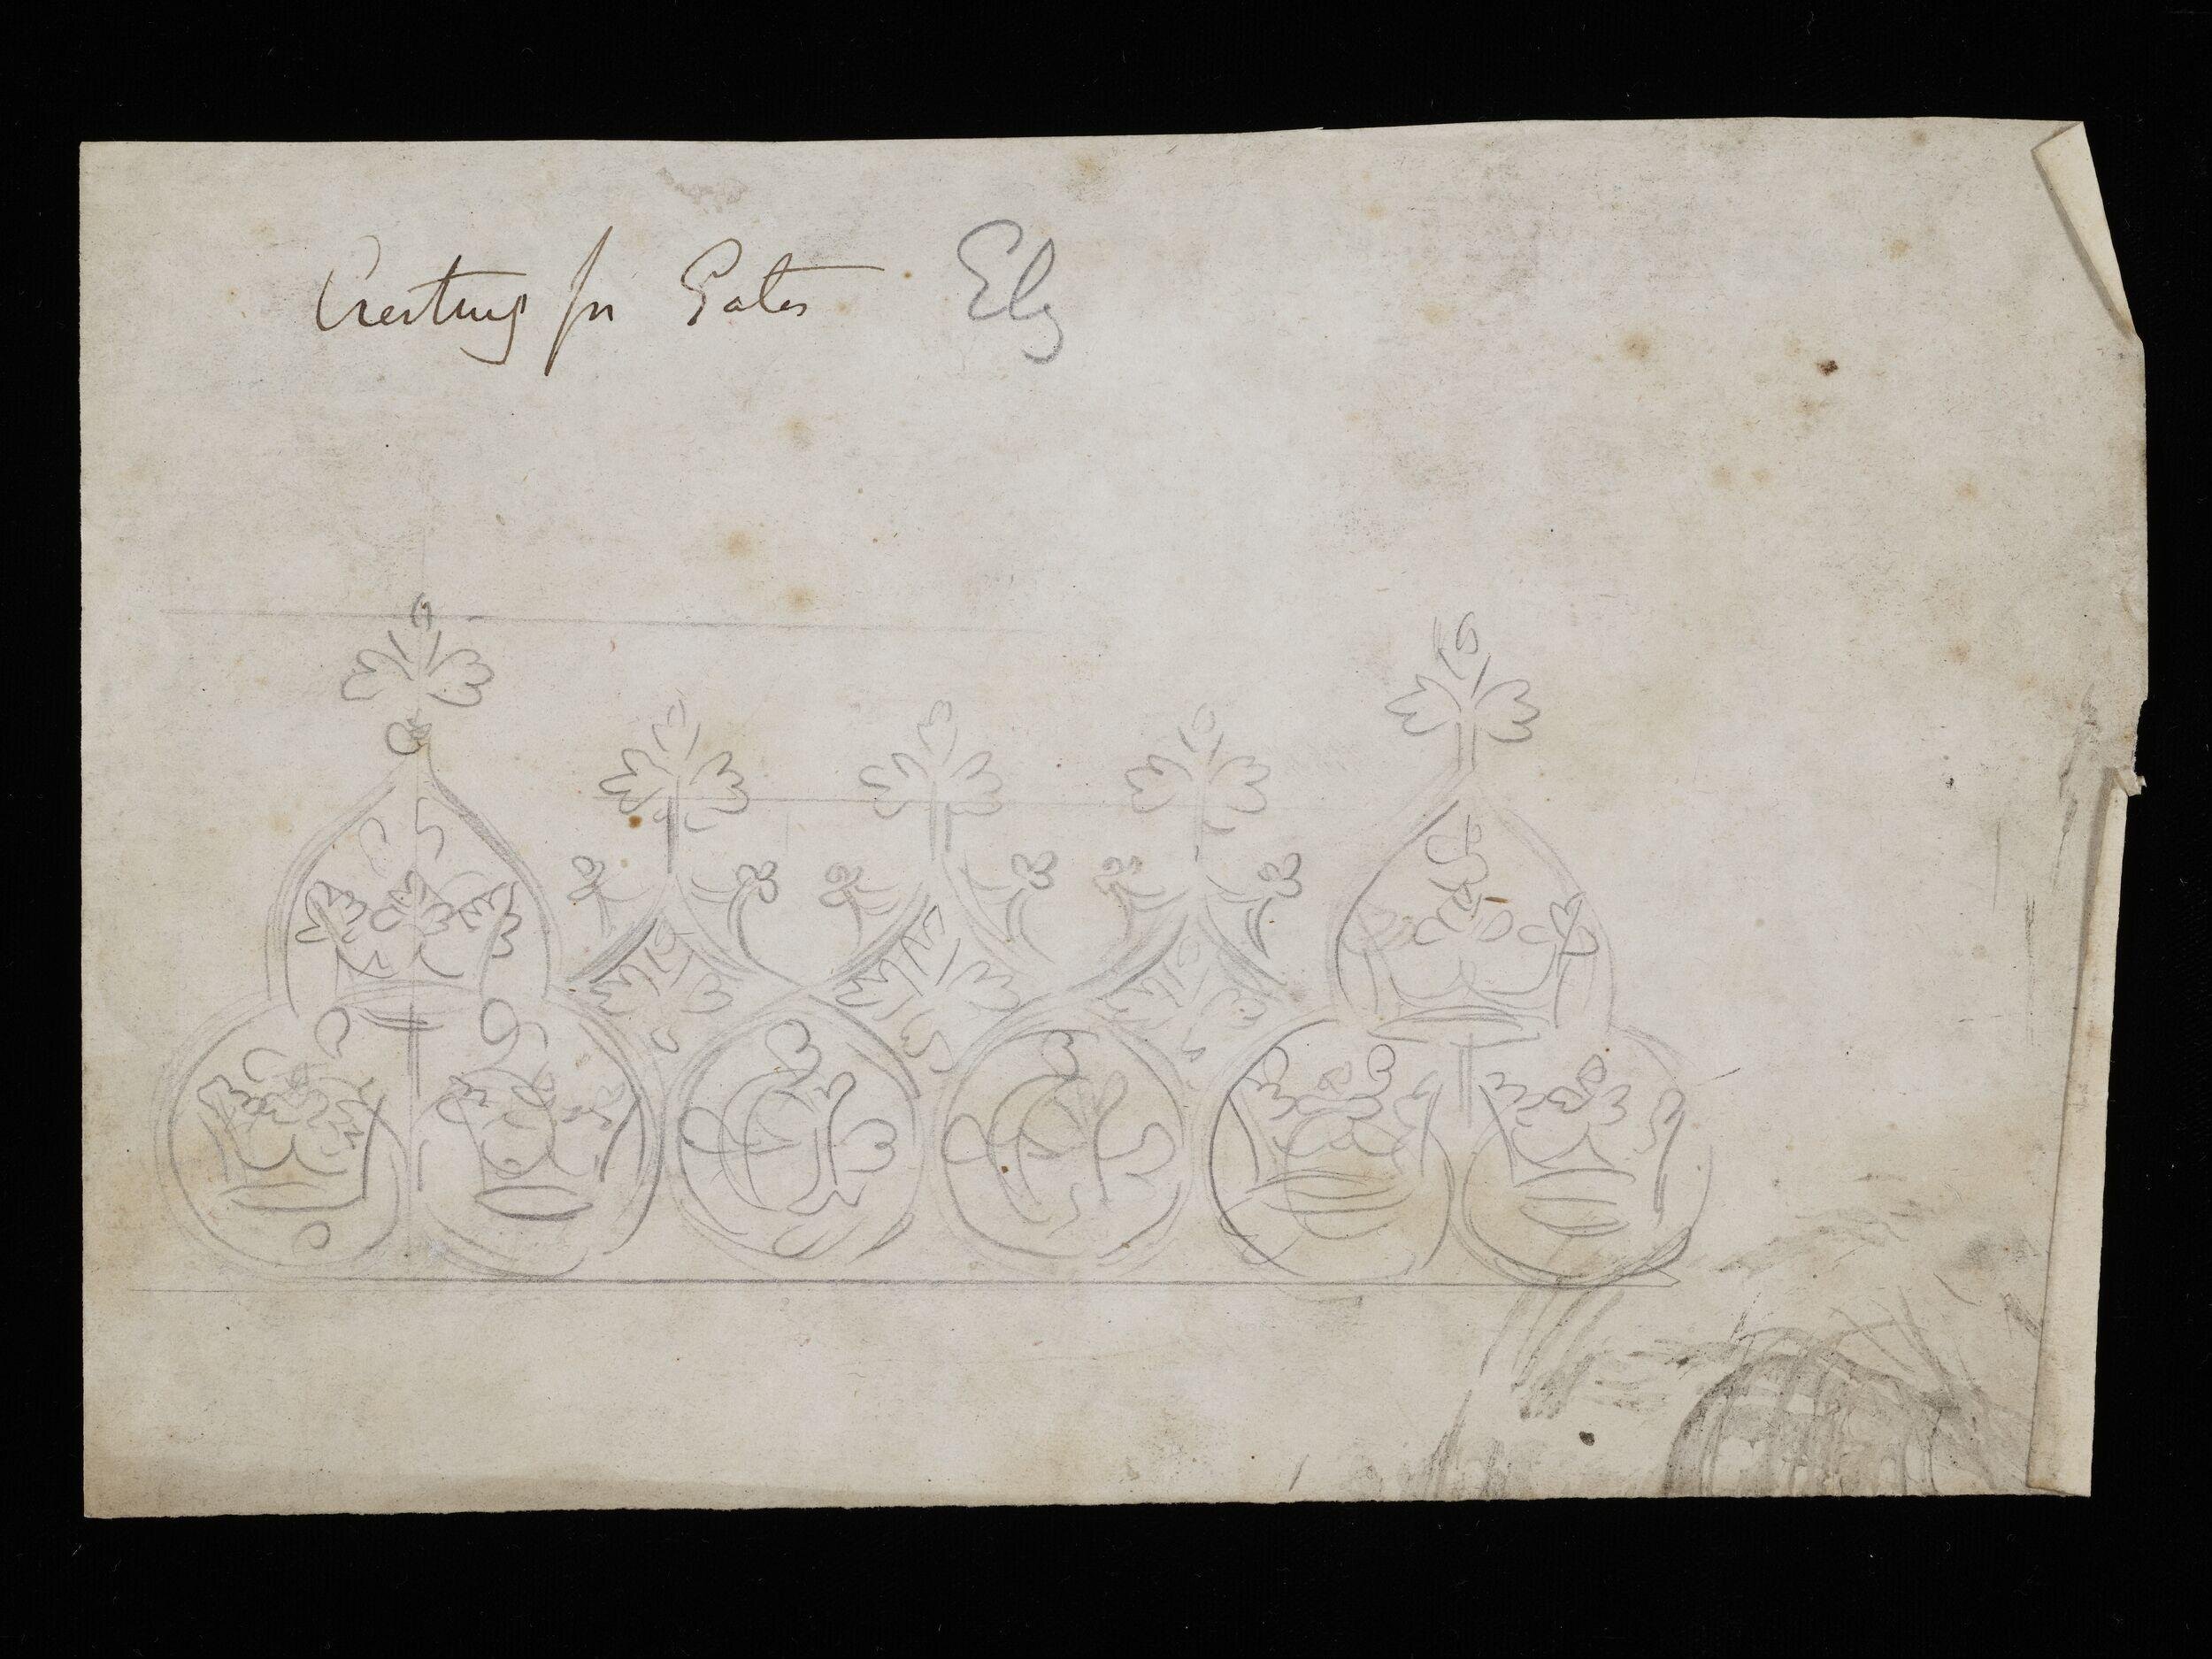 Cresting for Gates Ely